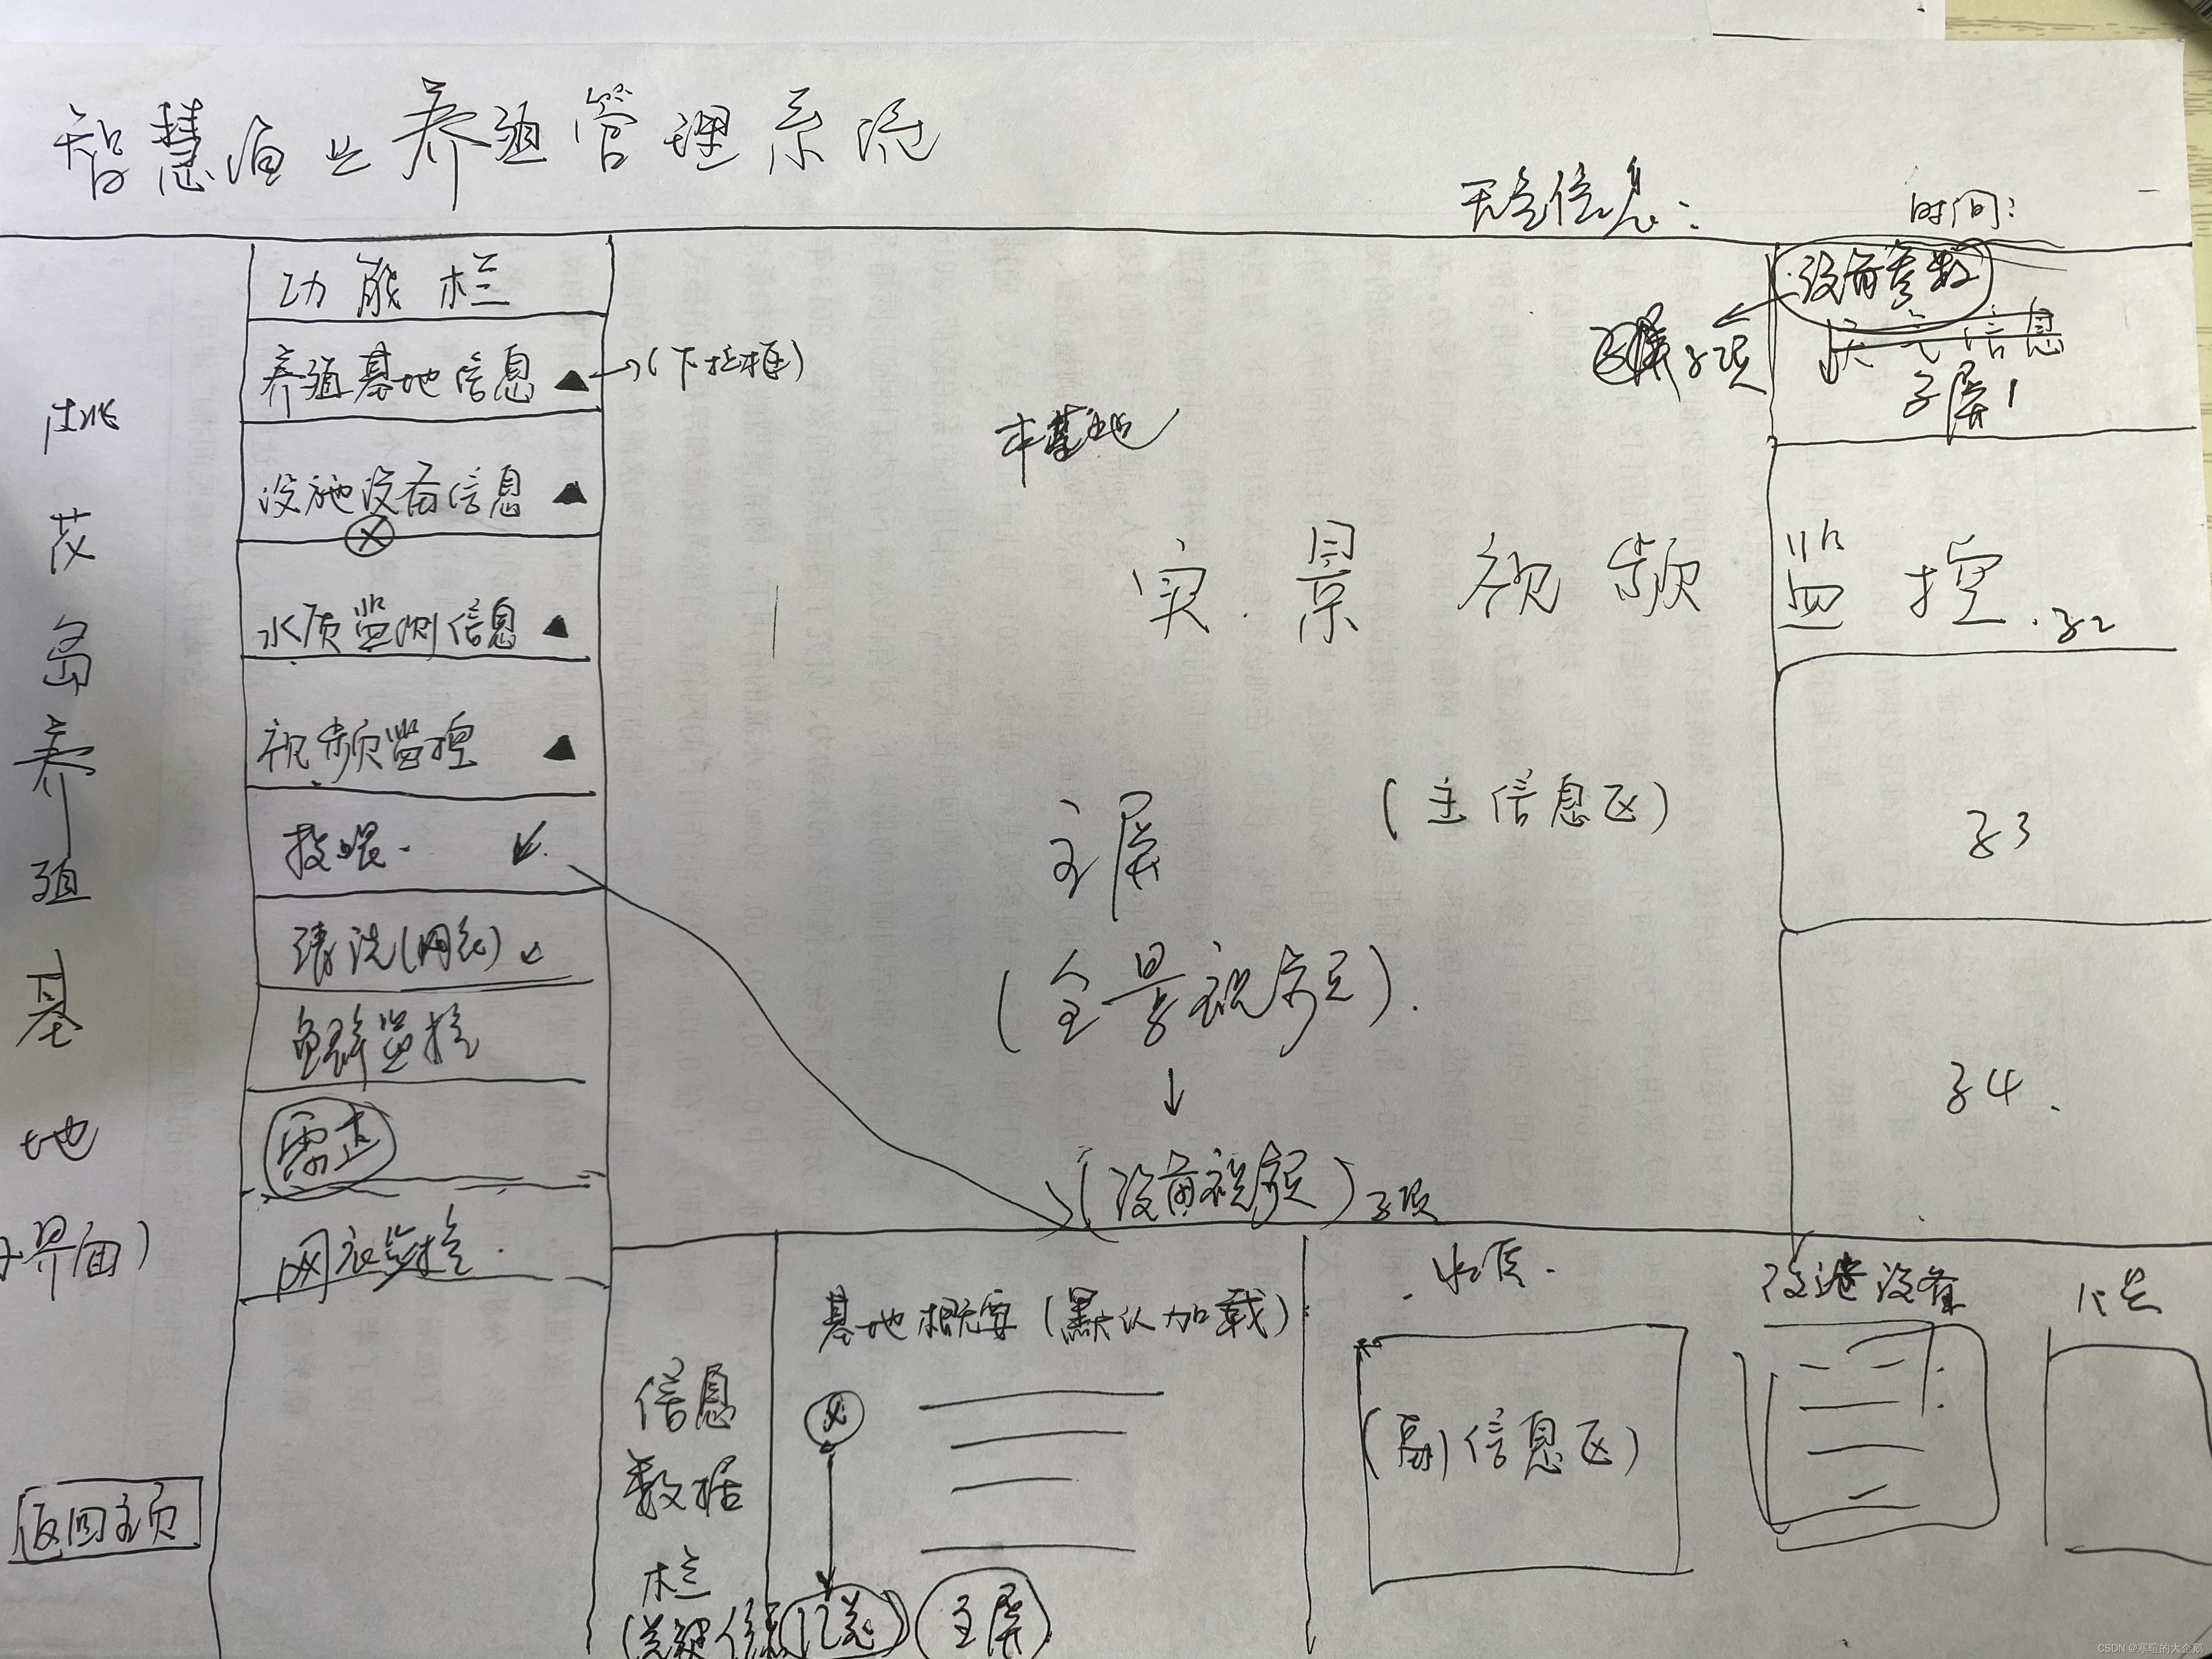 智慧渔业养殖管理系统
天气信息：
时间：
功能栏
养殖基地信息 ▲ →(下拉框)
设施设备信息 ▲
水质监测信息 ▲
视频监控 ▲
投喂
清洗(网衣)
鱼群监控
雷达
网衣监控
茂岛养殖基地
界面)
返回主页
本基地
实景视频监控
主屏
(主信息区)
(全景视频)
↓
(设备视频)子项
设备参数
子项
天气信息
子屏1
子2
子3
子4
信息数据栏
(关键信息
基地概要(默认加载)
主屏
水质
(副信息区)
改进设备